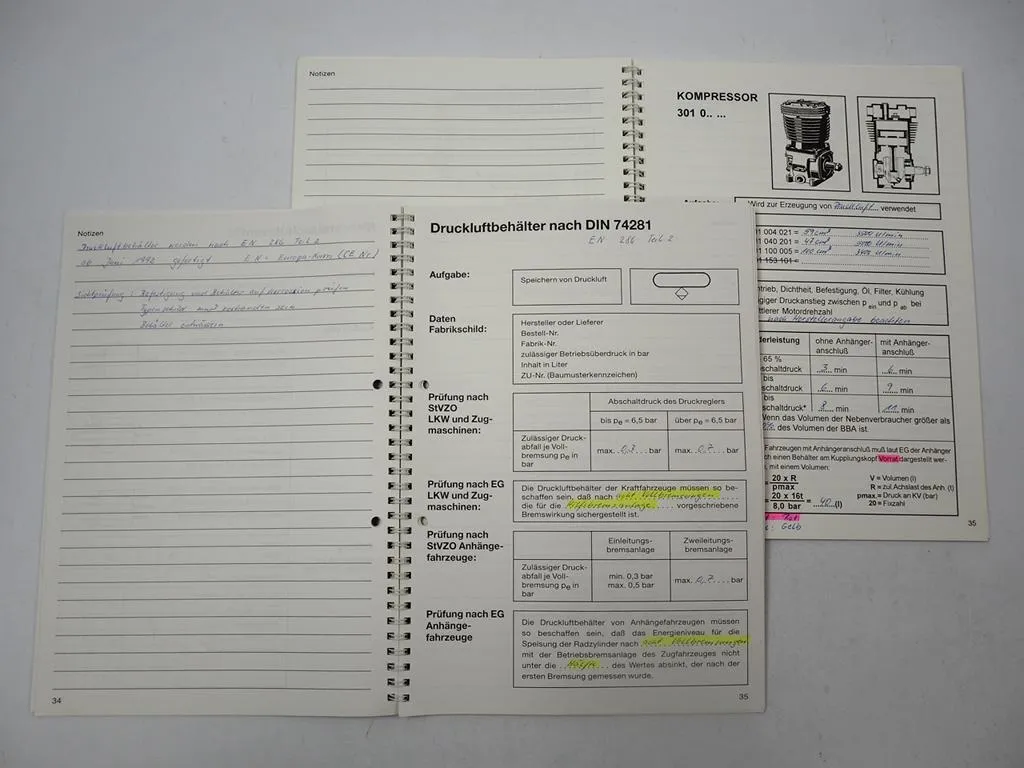 Notizen
KOMPRESSOR
301 0.. ...
Wird zur Erzeugung von Druckluft... verwendet
1 004 021 = 59 cm³
01 040 201 = 47 cm³
01 100 005 =
1 153 101 =
ntrieb, Dichtheit, Befestigung, Öl, Filter, Kühlung
giger Druckanstieg zwischen p ein und p ab bei
ttlerer Motordrehzahl
nach Herstellerangabe beachten
derleistung ohne Anhänger- mit Anhänger-
anschluß anschluß
65 %
schaltdruck ..3.. min ..6.. min
bis
schaltdruck ..6.. min ..9.. min
bis
schaltdruck* ..8.. min ..11.. min
Wenn das Volumen der Nebenverbraucher größer als
% des Volumen der BBA ist.
Fahrzeugen mit Anhängeranschluß muß laut EG der Anhänger
ch einen Behälter am Kupplungskopf Vorrat dargestellt wer-
, mit einem Volumen:
20 x R
pmax
20 x 16t
8,0 bar
= ...40...(l)
V = Volumen (l)
R = zul. Achslast des Anh. (t)
pmax = Druck an KV (bar)
20 = Fixzahl
: Rot
: Gelb
35
Notizen
Druckluftbehälter werden nach EN 286 Teil 2
ab Juni 1992 gefertigt EN = Europa-Norm (CE Nr.)
Sichtprüfung: Befestigung und Behälter auf Korrosion prüfen
Typenschild muß vorhanden sein
Behälter entwässern
34
Druckluftbehälter nach DIN 74281
EN 286 Teil 2
Aufgabe:
Speichern von Druckluft
Daten
Fabrikschild:
Hersteller oder Lieferer
Bestell-Nr.
Fabrik-Nr.
zulässiger Betriebsüberdruck in bar
Inhalt in Liter
ZU-Nr. (Baumusterkennzeichen)
Prüfung nach
StVZO
LKW und Zug-
maschinen:
Abschaltdruck des Druckreglers
bis pe = 6,5 bar über pe = 6,5 bar
Zulässiger Druck-
abfall je Voll-
bremsung pe in
bar
max. ..0,7.... bar max. ..0,7.... bar
Prüfung nach EG
LKW und Zug-
maschinen:
Die Druckluftbehälter der Kraftfahrzeuge müssen so be-
schaffen sein, daß nach acht Vollbremsungen....
die für die ..Hilfsbremsanlage.... vorgeschriebene
Bremswirkung sichergestellt ist.
Prüfung nach
StVZO Anhänge-
fahrzeuge:
Einleitungs-
bremsanlage
Zweileitungs-
bremsanlage
Zulässiger Druck-
abfall je Voll-
bremsung pe in
bar
min. 0,3 bar
max. 0,5 bar
max. .0,7.... bar
Prüfung nach EG
Anhänge-
fahrzeuge
Die Druckluftbehälter von Anhängefahrzeugen müssen
so beschaffen sein, daß das Energieniveau für die
Speisung der Radzylinder nach acht Vollbremsungen
mit der Betriebsbremsanlage des Zugfahrzeuges nicht
unter die ..Hälfte.... des Wertes absinkt, der nach der
ersten Bremsung gemessen wurde.
35